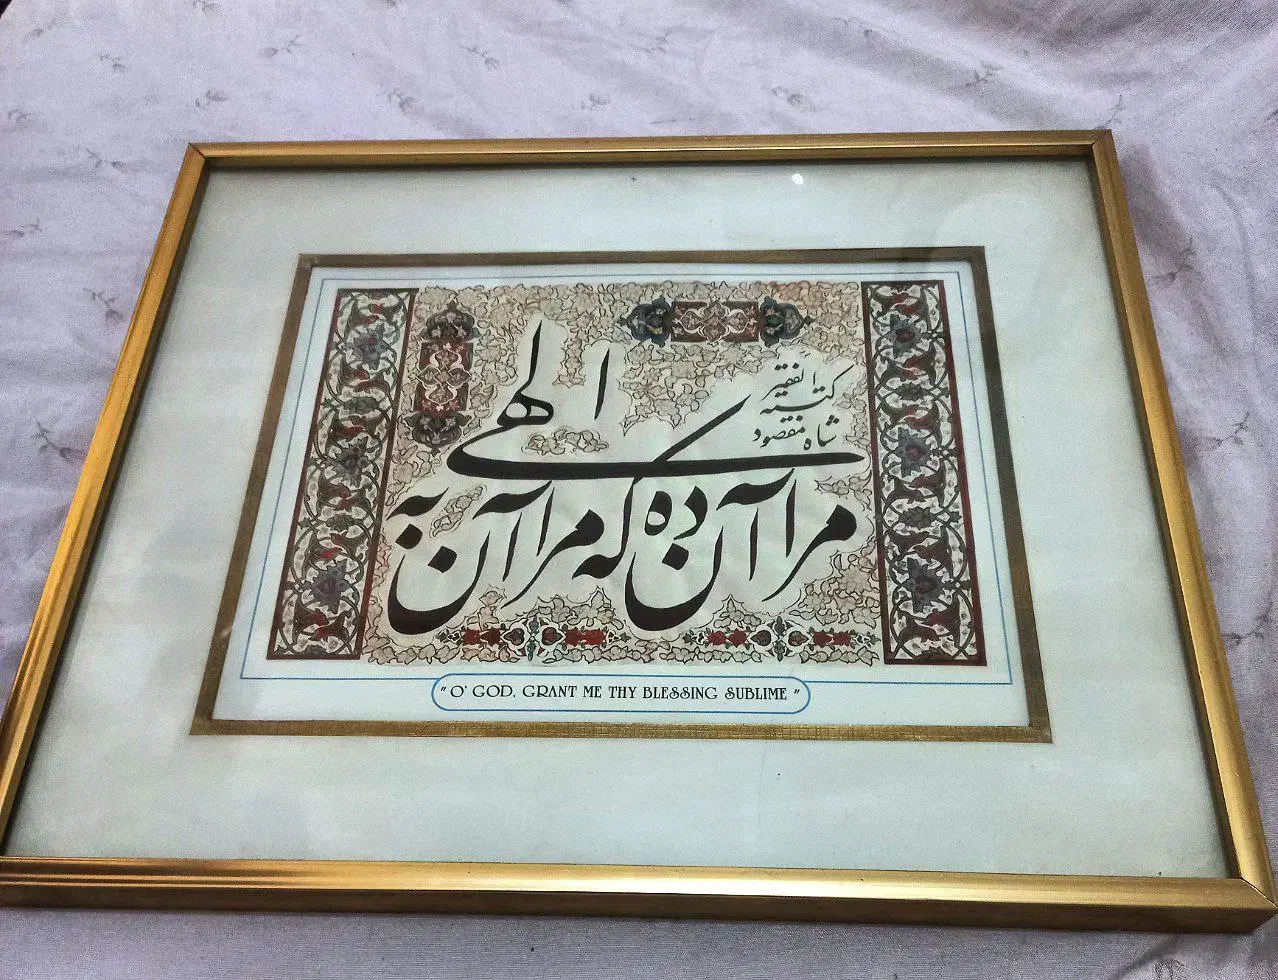 الهی
مرا آن ده که مرا آن به
کتبه الفقیر
شاه مقصود
" O' GOD, GRANT ME THY BLESSING SUBLIME "